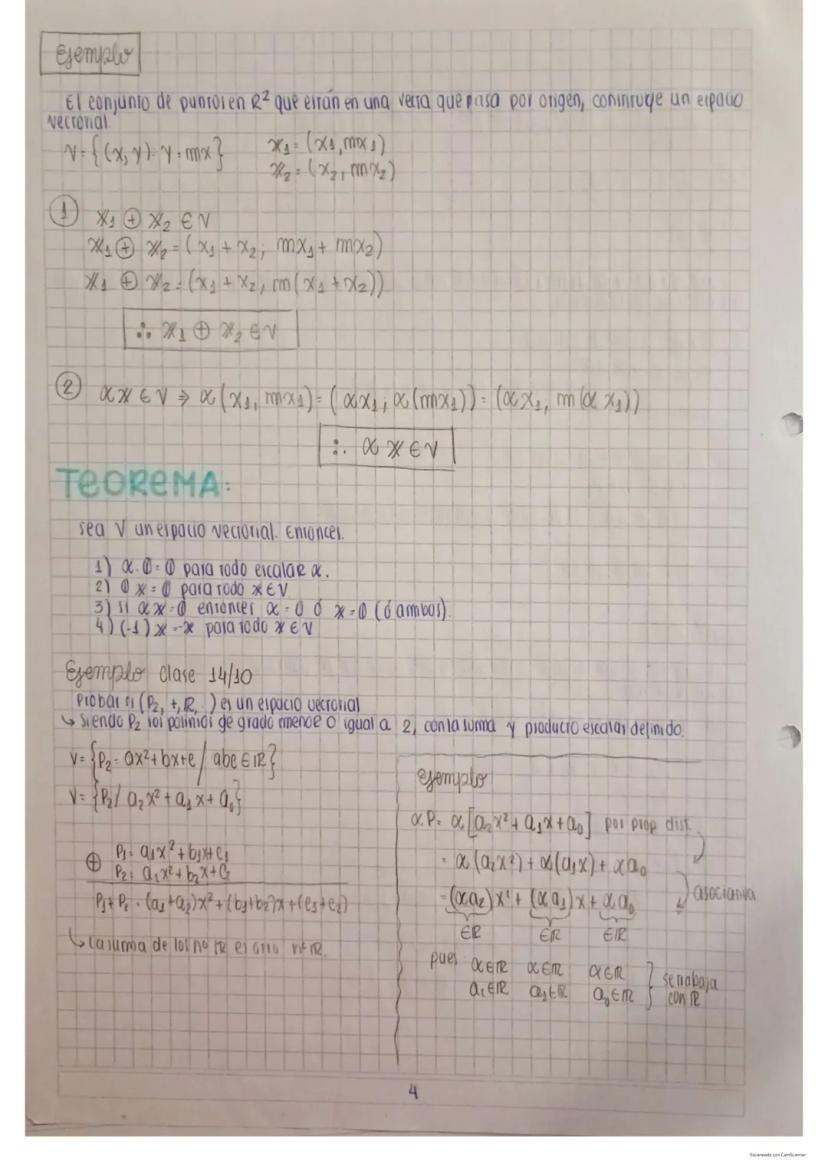 Ejemplo
El conjunto de puntos en R² que están en una recta que pasa por origen, construye un espacio
vectorial
V = {(x, y): y = mx}   x₁ = (x₁, mx₁)
x₂ = (x₂, mx₂)
① x₁ ⊕ x₂ ∈ V
x₁ ⊕ x₂ = (x₁ + x₂; mx₁ + mx₂)
x₁ ⊕ x₂ = (x₁ + x₂, m(x₁ + x₂))
∴ x₁ ⊕ x₂ ∈ V
② αx ∈ V ⇒ α(x₁, mx₁) = (αx₁; α(mx₁)) = (αx₁, m(αx₁))
∴ αx ∈ V
TEOREMA:
sea V un espacio vectorial. Entonces.
1) α.0 = 0 para todo escalar α.
2) 0 x = 0 para todo x ∈ V
3) si αx = 0 entonces α = 0 ó x = 0 (ó ambos).
4) (-1)x = -x para todo x ∈ V
Ejemplo clase 14/10
Probar si (P₂, +, R, .) es un espacio vectorial
↳ siendo P₂ los polinios de grado menor o igual a 2, con la suma y producto escalar definido.
V = {P₂ = ax² + bx + c / abc ∈ R}
V = {P₂/ a₂x² + a₁x + a₀}
⊕ P₁ = a₁x² + b₁x + c₁
P₂ = a₂x² + b₂x + c₂
P₁ + P₂ = (a₁ + a₂)x² + (b₁ + b₂)x + (c₁ + c₂)
↳ la suma de los no R es otro nº R.
Ejemplo
α.P = α[a₂x² + a₁x + a₀] por prop dist.
= α(a₂x²) + α(a₁x) + αa₀
= (αa₂)x² + (αa₁)x + αa₀ asociativa
∈R ∈R ∈R
pues α∈R α∈R α∈R
a₂∈R a₁∈R a₀∈R } se trabaja
con R
4
Escaneado con CamScanner